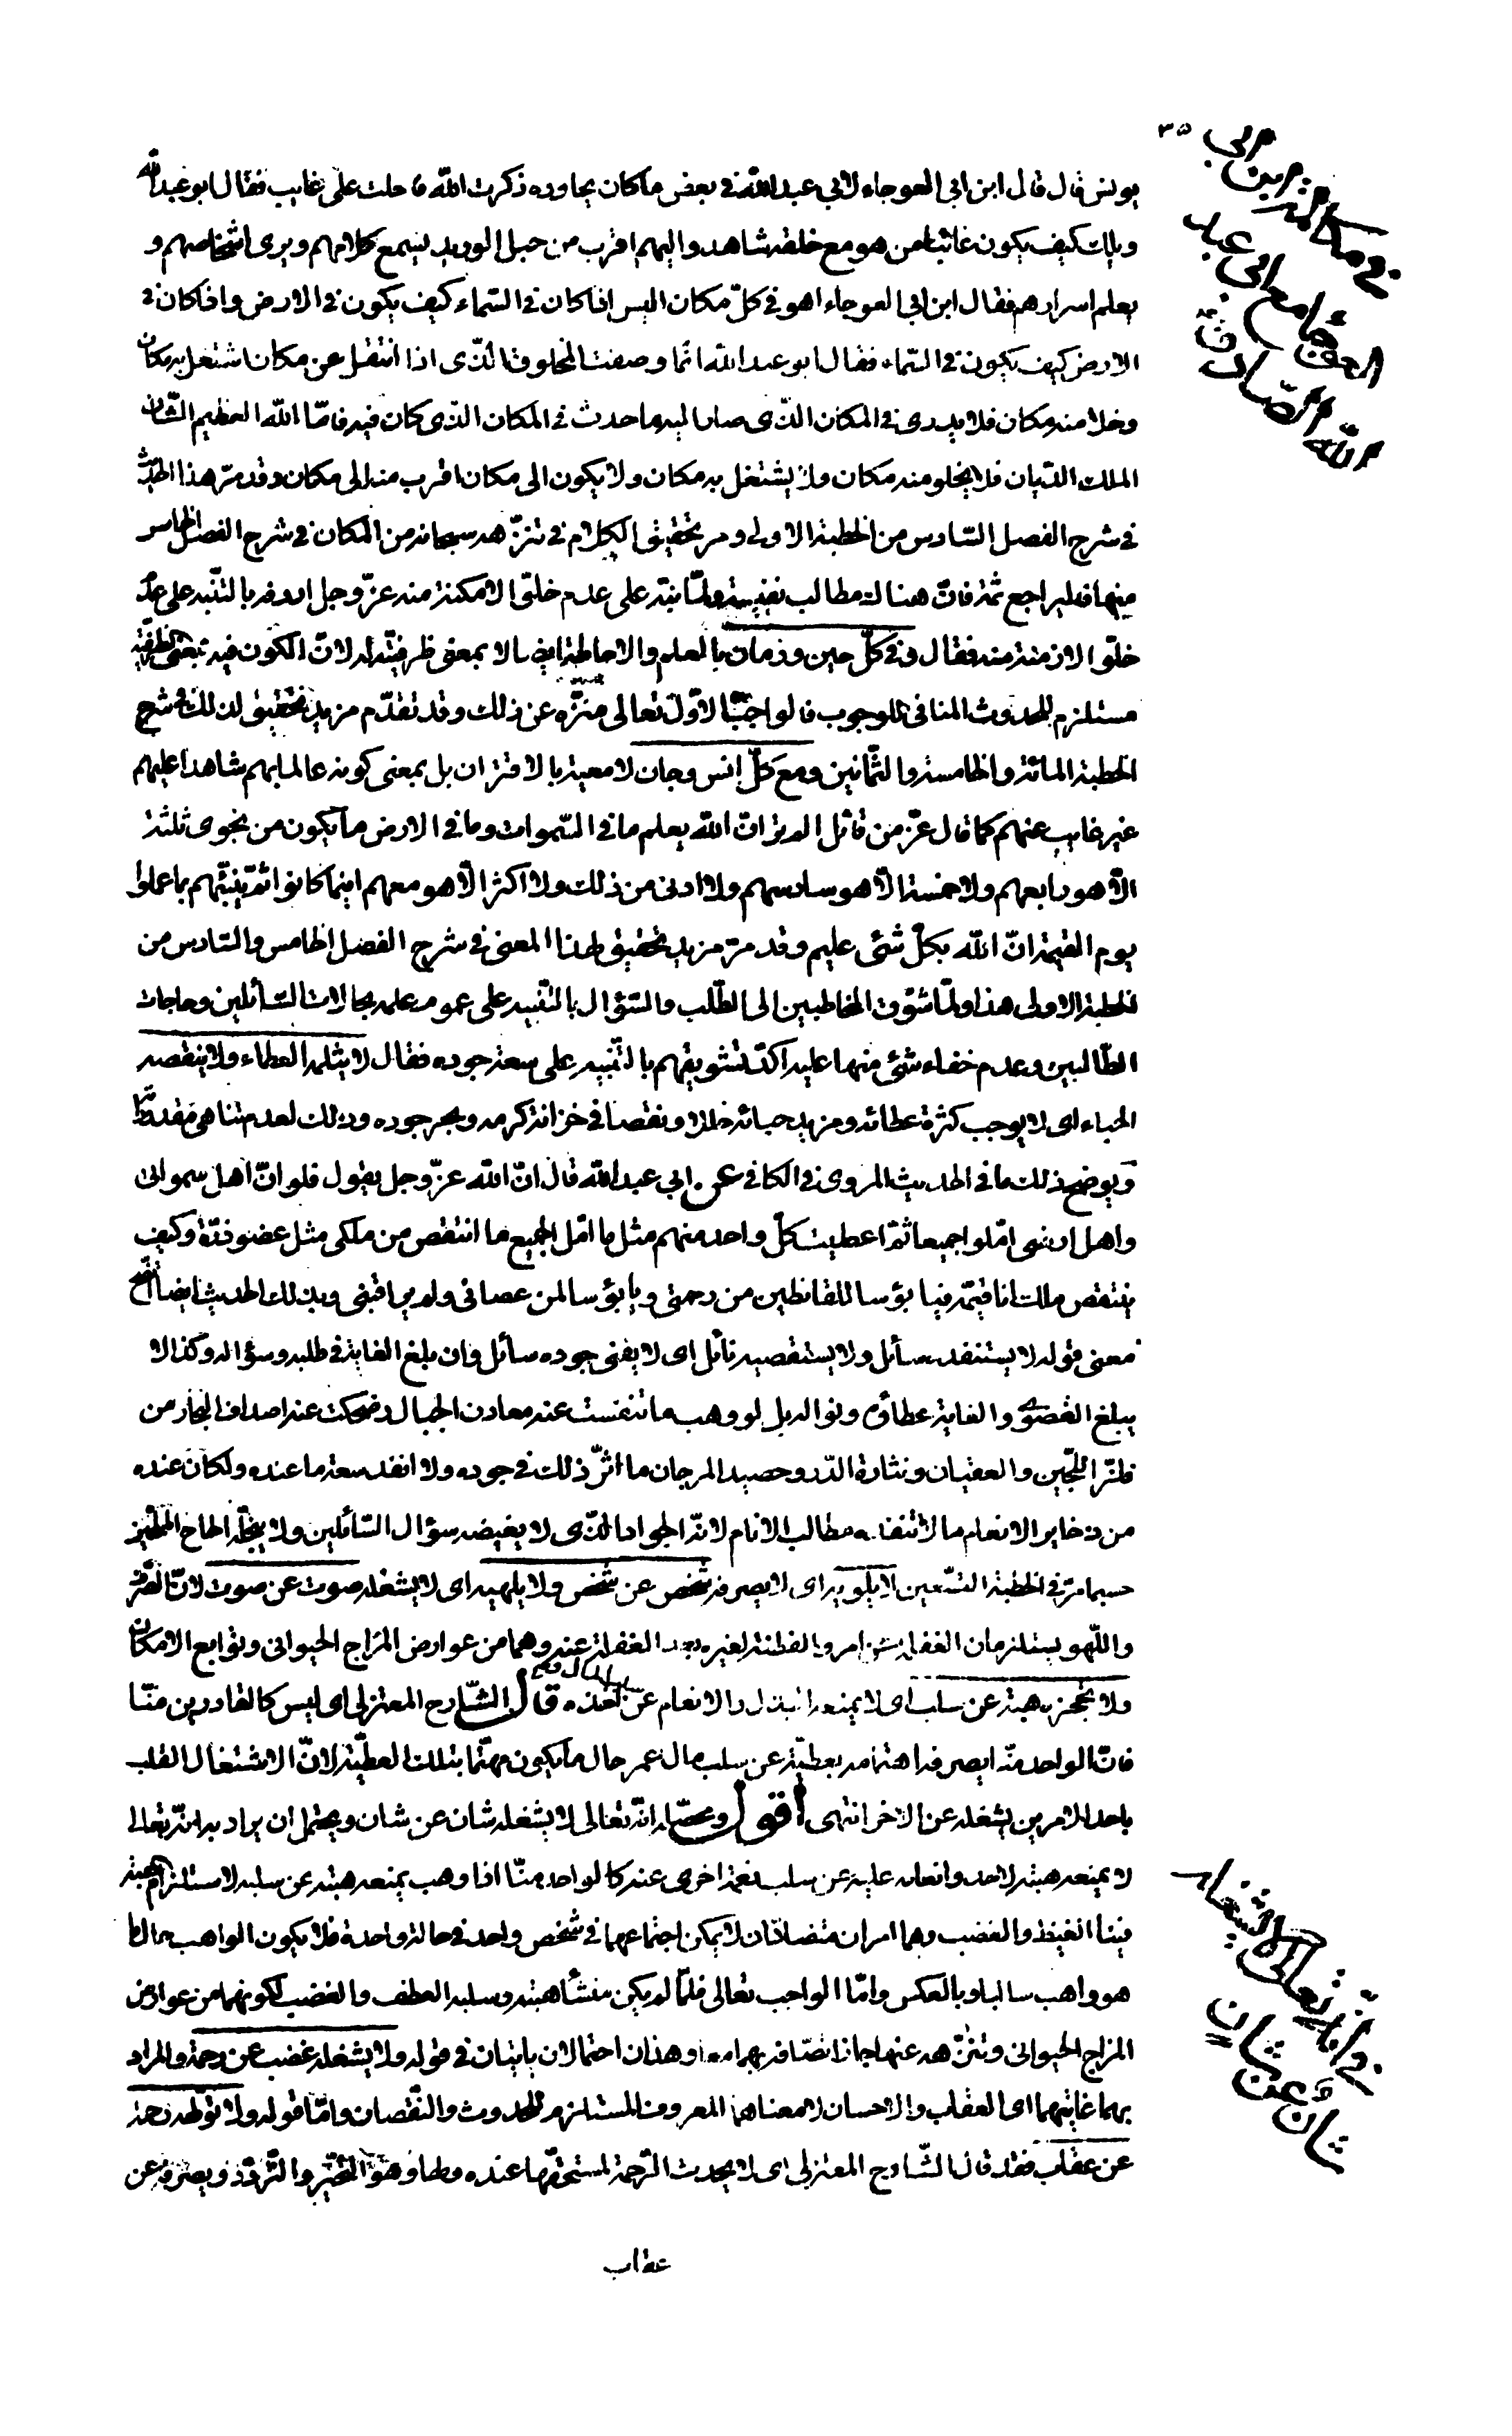 ٣٥
في مكالمة ابن ابي
العوجاء مع ابي عبد
الله الصّادق
يونس قال قال ابن ابي العوجاء لابي عبد اللّه في بعض ما كان يحاوره ذكرت اللّه فاحلت على غايب فقال ابو عبد اللّه
ويلك كيف يكون غائبا من هو مع خلقه شاهد واليهم اقرب من حبل الوريد يسمع كلامهم ويرى اشخاصهم و
يعلم اسرارهم فقال ابن ابي العوجاء اهو في كلّ مكان اليس اذا كان في السّماء كيف يكون في الارض واذا كان في
الارض كيف يكون في السّماء فقال ابو عبد اللّه انّما وصفت المخلوق الّذى اذا انتقل عن مكان اشتغل به مكان
وخلا منه مكان فلا يدرى في المكان الّذى صار اليه ما حدث في المكان الّذى كان فيه فامّا اللّه العظيم الشّان
الملك الدّيان فلا يخلو منه مكان ولا يشتغل به مكان ولا يكون الى مكان اقرب منه الى مكان وقد مرّ هذا الحديث
في شرح الفصل السّادس من الخطبة الاولى ومر تحقيق الكلام في تنزّهه سبحانه من المكان في شرح الفصل الخامس
منها فليراجع ثمّة فانّ هناك مطالب نفيسة ولمّا نبّه على عدم خلوّ الامكنة منه عزّ وجل اردفه بالتّنبيه على عدم
خلوّ الازمنة منه فقال وفي كلّ حين وزمان بالعلم والاحاطة ايضا لا بمعنى ظرفيّته له لانّ الكون فيه بمعنى الظرفيّة
مستلزم للحدوث المنافي للوجوب فالواجب الاوّل تعالى منزّه عن ذلك وقد تقدّم مزيد تحقيق لذلك في شرح
الخطبة المائة والخامسة والثّمانين ومع كلّ انس وجان لا معية بالاقتران بل بمعنى كونه عالما بهم شاهدا عليهم
غير غايب عنهم كما قال عزّ من قائل الم تر انّ اللّه يعلم ما في السّموات وما في الارض ما يكون من نجوى ثلثة
الّا هو رابعهم ولا خمسة الّا هو سادسهم ولا ادنى من ذلك ولا اكثر الّا هو معهم اينما كانوا ثمّ ينبّئهم بما عملوا
يوم القيمة انّ اللّه بكلّ شئ عليم وقد مرّ مزيد تحقيق لهذا المعنى في شرح الفصل الخامس والسّادس من
الخطبة الاولى هذا ولمّا شوّق المخاطبين الى الطّلب والسّؤال بالتّنبيه على عموم علمه بحالات السّائلين وحاجات
الطّالبين وعدم خفاء شئ منها عليه اكّد تشويقهم بالتّنبيه على سعة جوده فقال لا يثلمه العطاء ولا ينقصه
الحباء اى لا يوجب كثرة عطائه ومزيد حبائه خللا ونقصا في خزانة كرمه وبحر جوده وذلك لعدم تناهي مقدوراته
ويوضح ذلك ما في الحديث المروى في الكافي عن ابي عبد اللّه قال انّ اللّه عزّ وجل يقول فلو انّ اهل سمواتى
واهل ارضى امّلوا جميعا ثمّ اعطيت كلّ واحد منهم مثل ما امّل الجميع ما انتقص من ملكى مثل عضو ذرّة وكيف
ينتقص ملك انا قيّمه فيا بؤسا للقانطين من رحمتى ويا بؤسا لمن عصانى ولم يراقبنى وبذلك الحديث ايضا اتّضح
معنى قوله لا يستنفده سائل ولا يستقصيه نائل اى لا يفنى جوده سائل وان بلغ الغاية في طلبه وسؤاله وكذا لا
يبلغ القصوى والغاية عطاؤه ونواله بل لو وهب ما تنفست عنه معادن الجبال وضحكت عنه اصداف البحار من
فلزّ اللّجين والعقيان ونثارة الدّر وحصيد المرجان ما اثّر ذلك في جوده ولا انفد سعة ما عنده ولكان عنده
من ذخاير الانعام ما لا تنفده مطالب الانام لانّه الجواد الّذى لا يغيضه سؤال السّائلين ولا يبخّله الحاح الملحّين
حسبما مرّ في الخطبة التّسعين لا يلويه اى لا يصرفه شخص عن شخص ولا يلهيه اى لا يشغله صوت عن صوت لانّ الصّرف
واللّهو يستلزمان الغفلة عن امر والفطنة لغيره بعد الغفلة عنه وهما من عوارض المزاج الحيوانى وتوابع الامكان
ولا تحجزه هبة عن سلب اى لا يمنعه البذل والانعام عن سلب المال ورفع نعمة قال الشّارح المعتزلى اى ليس كالقادرين منّا
فانّ الواحد منّا يصرفه اهتمامه بعطيّة عن سلب مال عمر حال ما يكون مهتمّا بتلك العطيّة لانّ الاشتغال القلب
باحد الامرين يشغله عن الاخر انتهى اقول ومحصّله انّه تعالى لا يشغله شان عن شان ويحتمل ان يراد به انّه تعالى
لا يمنعه هبته لاحد وانعامه عليه عن سلب نعمة اخرى عنه كالواحد منّا اذا وهب يمنعه هبته عن سلبه لاستلزام الهبة
فينا الغيظ والغضب وهما امران متضادّان لا يمكن اجتماعهما في شخص واحد في حالة واحدة فلا يكون الواهب حال ما
هو واهب سالبا وبالعكس وامّا الواجب تعالى فلمّا لم يكن منشأ هبته وسلبه العطف والغضب لكونهما من عوارض
المزاج الحيوانى وتنزّهه عنها جاز اتّصافه بهما معا وهذان احتمالان يأتيان في قوله ولا يشغله غضب عن رحمة والمراد
بهما غايتهما اى العقاب والاحسان لا معناهما المعروف المستلزم للحدوث والنّقصان وامّا قوله ولا تولهه رحمة
عن عقاب فقد قال الشّارح المعتزلى اى لا يحدث الرّحمة لمستحقّها عنده ولها وهو التحيّر والتّردّد ويصرفه عن
في انّه تعالى لا يشغله
شان عن شان
عقاب